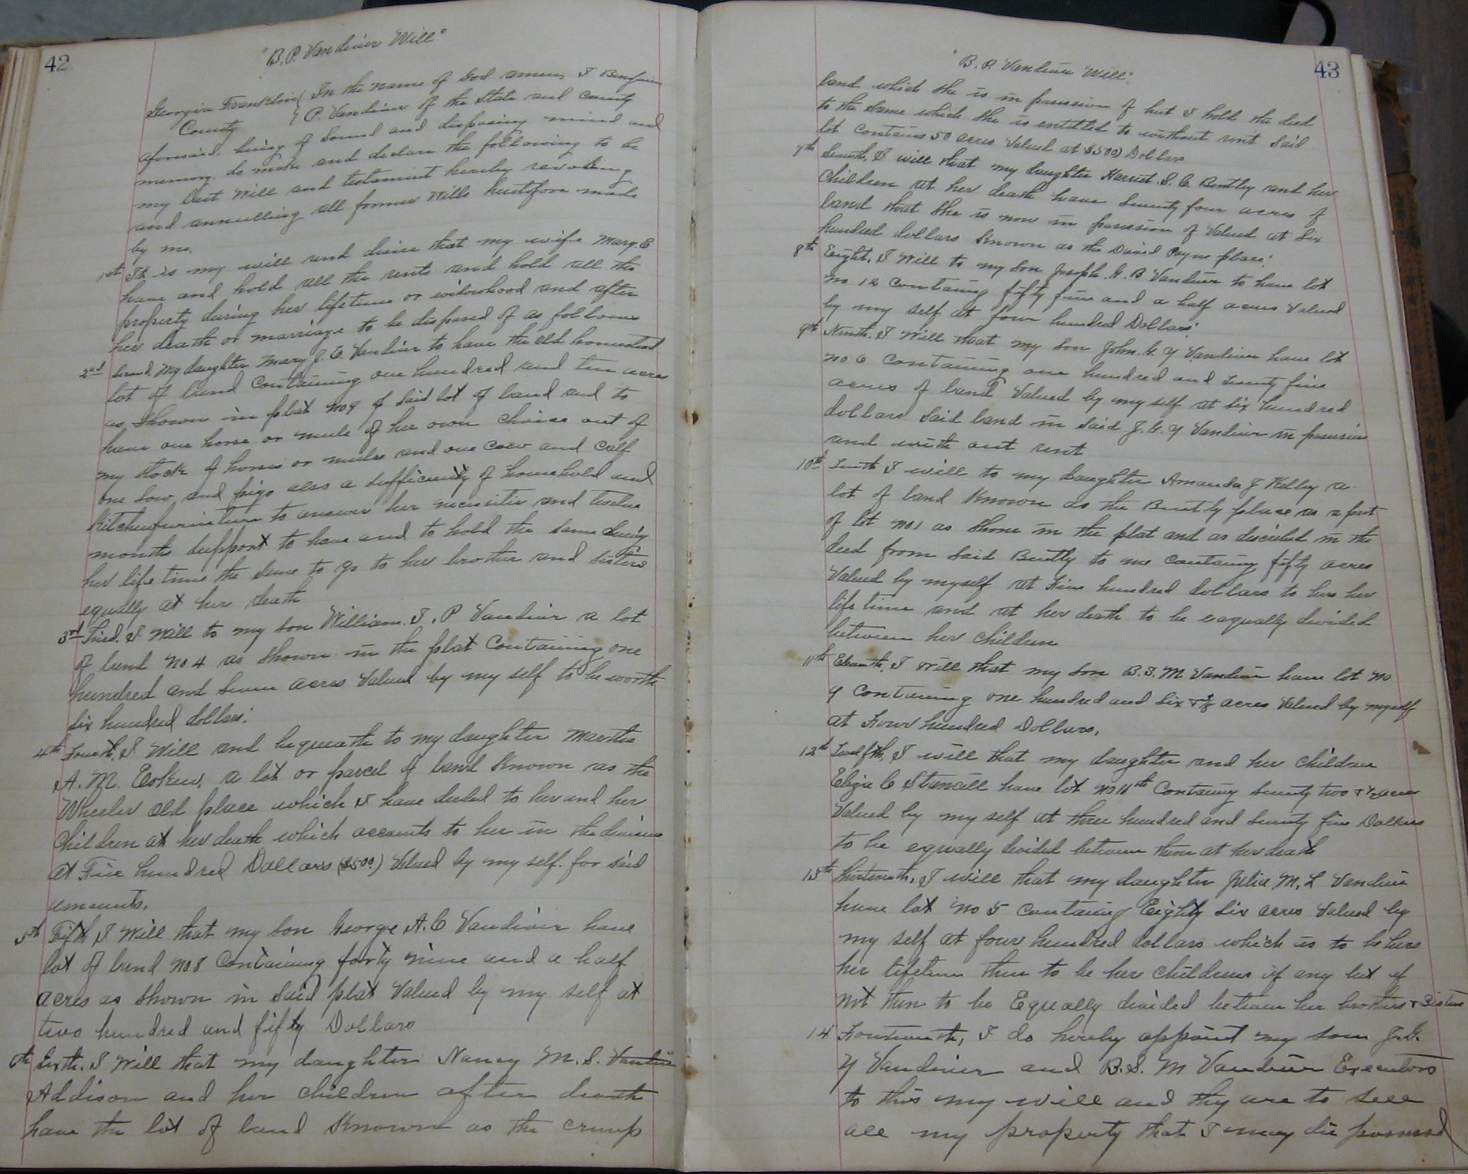 42
"B. P. Vandivir Will"
Georgia Franklin } In the name of God amen, I Benjamin
County } P. Vandiver of the State and County
aforesaid, being of Sound and disposing mind and
memory, do make and declare the following to be
my Last Will and testament hereby revoking
and annulling all former Wills heretofore made
by me.
1st It is my will and desire that my wife Mary. E
have and hold all the rents and hold all the
property during her lifetime or widowhood and after
her death or marriage to be disposed of as follows
2nd Second, My daughter Mary J. E. Vandiver to have the old homestead
lot of land Containing one hundred and acres
as Shown in plat No 9 of Said lot of land and to
have one horse or mule of her own Choice out of
my stock of horses or mules and one cow and Calf
one Sow, and pigs also a Sufficiency of household and
Kitchenfurniture to answer her necessities, and twelve
months Support to have and to hold the same during
her life time the Same to go to her brother and sisters
equally at her death
3rd Third, I Will to my Son William. T. P Vandivir a lot
of land No 4 as Shown in the plat Containing one
hundred and Seven acres Valued by my self to be worth
Six hundred dollars.
4th Fourth, I Will and bequeath to my daughter Martha
A. M. Eskew, a lot or parcel of land Known as the
Wheeler old place which I have deeded to her and her
Children at her death which accounts to her in the division
at Five hundred Dollars ($500.) Valued by my self. for said
amounts.
5th Fifth I Will that my Son George A. C Vandivir have
lot of land No 8 Containing forty nine and a half
acres as Shown in Said plat Valued by my self at
two hundred and fifty Dollars
6th Sixth. I Will that my daughter Nancy M. S. Vandiver
Addison and her children after death
have the lot of land Known as the crump
43
"B. P. Vandivir Will"
land which She is in possession of but I hold the deed
to the Same which She is entitled to without rent Said
lot Contains 50 acres Valued at $500 Dollars
7th Seventh, I will that my daughter Harriet S. C. Bently and her
Children at her death have Seventy four acres of
land that She is now in possession of Valued at Six
hundred dollars Known as the David Pryor place.
8th Eight, I Will to my Son Joseph. G. B Vandiver to have lot
No 12 Containg fifty five and a half acres Valued
by my self at four hundred Dollars.
9th Ninth, I Will that my Son John. G. Y Vandiver have lot
No 6 Containing one hundred and twenty five
acres of land Valued by my self at Six hundred
dollars Said land in Said J. G. Y Vandiver in possession
and with out rent
10th Tenth I will to my daughter Amanda J Kelly a
lot of land Known as the Bently place as a part
of lot No 1 as Shown in the plat and as discribed in the
deed from Said Bently to me Containg fifty acres
Valued by myself at Five hundred dollars to her her
lifetime and at her death to be eaqually divided
between her Children
11th Eleventh, I will that my Son B. S. M. Vandiver have lot No
9 Containing one hundred and Six + ½ acres Valued by myself
at Four hundred Dollars.
12th Twelfth, I will that my daughter and her Children
Eliza C Stancill have lot No 11th Containg Seventy two + ½ acres
Valued by my self at three hundred and Seventy five Dollars
to be equally divided between them at her death
13th Thirteenth, I will that my daughter Julia M. L Vandiver
have lot No 5 Containg Eighty Six acres Valued by
my self at four hundred dollars which is to be hers
her lifetime then to be her childrens if any but if
not then to be Equally divided between her brothers + Sisters
14 Fourteenth, I do hereby appoint my sons J. G.
Y Vandiver and B. S. M Vandiver Executors
to this my will and they are to sell
all my property that I may die possessed